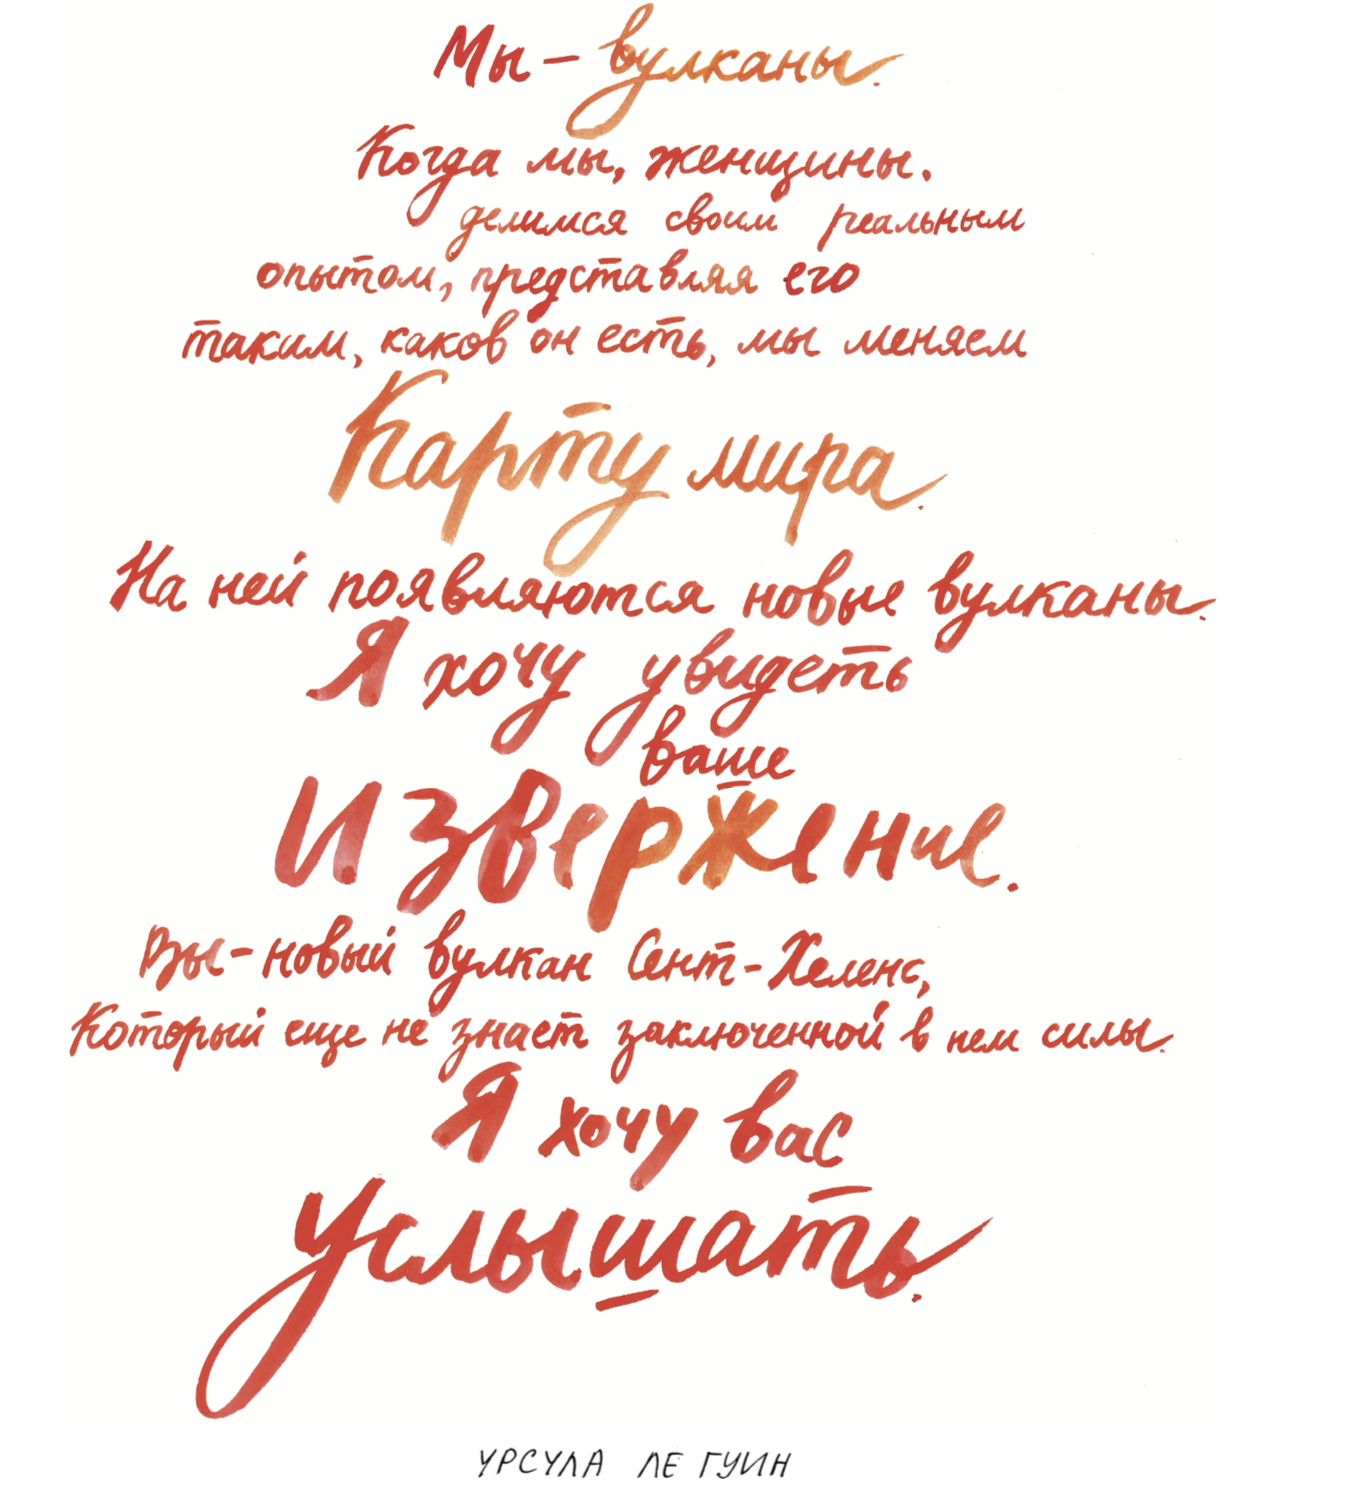 Мы – вулканы.
Когда мы, женщины,
делимся своим реальным
опытом, представляя его
таким, каков он есть, мы меняем
Карту мира.
На ней появляются новые вулканы.
Я хочу увидеть
ваше
Извержение.
Вы – новый вулкан Сент-Хеленс,
Который еще не знает заключенной в нем силы.
Я хочу вас
Услышать.
УРСУЛА ЛЕ ГУИН